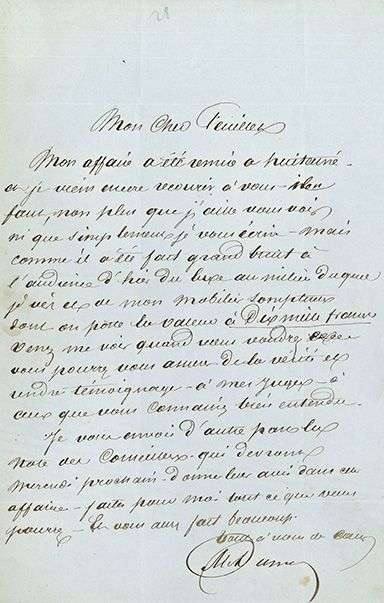 28
Mon cher Feuillet
Mon affaire a été remise a huitaine -
or je viens encore recourir à vous - il ne
faut, non plus que j'aille vous voir
ni que simplement je vous écrive - mais
comme il a été fait grand bruit à
l'audience d'hier du luxe au milieu duquel
je vis et de mon mobilier somptueux
dont on porte la valeur à Dix mille francs
venez me voir quand vous voudrez
vous pourrez vous assurer de la vérité et
rendre témoignage - à mes juges - à
ceux que vous connaissez bien entendu.
Je vous envoie d'autre part la
note des Conseillers - qui devront
mercredi prochain - donner leur avis dans cette
affaire - faites pour moi tout ce que vous
pourrez - Et vous aurez fait beaucoup.
tout à vous de cœur
A Dumas